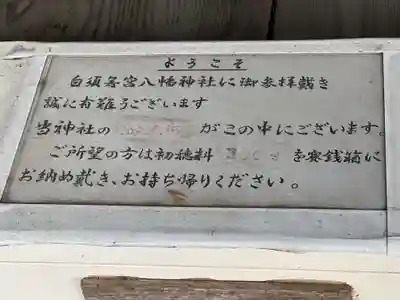 ようこそ
白須若宮八幡神社に御参拝戴き
誠に有難うございます
当神社の が この中にございます。
ご所望の方は初穂料 を賽銭箱に
お納め戴き、お持ち帰りください。